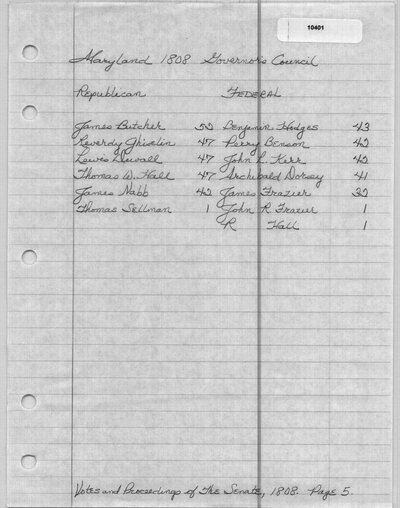 10401
Maryland 1808 Governor's Council
Republican FEDERAL
James Butcher 52 Benjamin Hodges 43
Reverdy Ghiselin 47 Perry Benson 42
Lewis Duvall 47 John L. Kerr 42
Thomas W. Hall 47 Archibald Dorsey 41
James Nabb 42 James Frazier 32
Thomas Sellman 1 John R Frazier 1
R Hall 1
Votes and Proceedings of the Senate, 1808. Page 5.